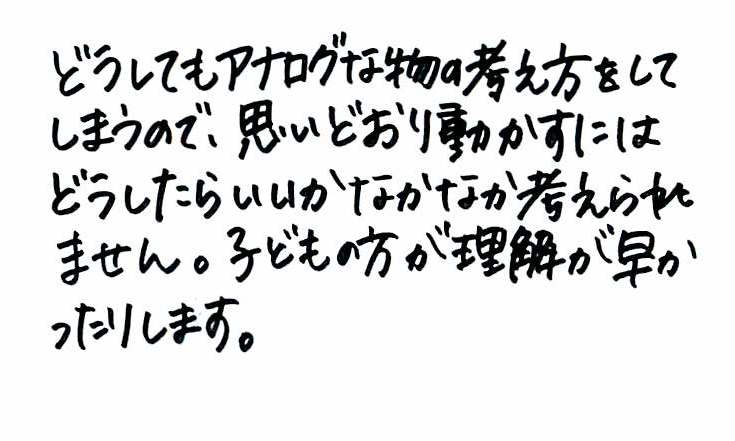 どうしてもアナログな物の考え方をして
しまうので、思いどおり動かすには
どうしたらいいかなかなか考えられ
ません。子どもの方が理解が早か
ったりします。